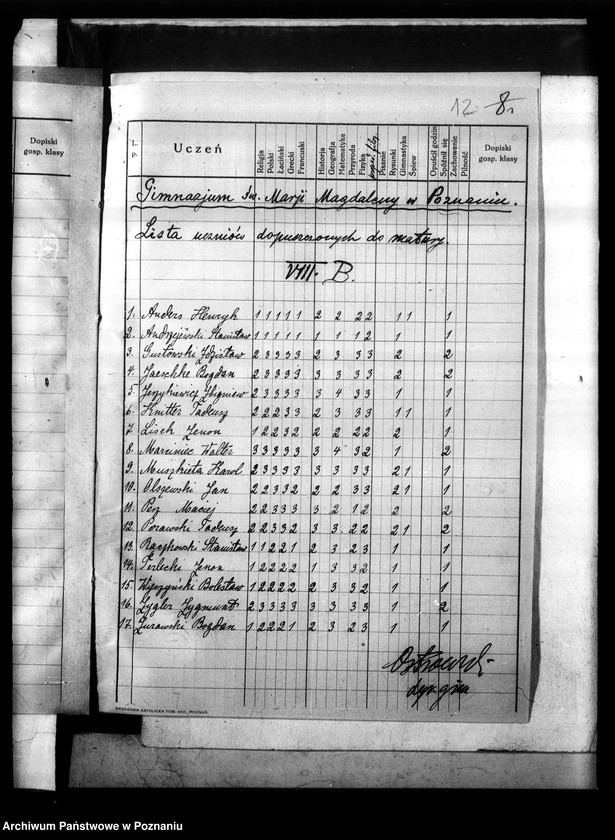 12 8.
Dopiski
gosp. klasy
L. p. Uczeń Religja Polski Łaciński Grecki Francuski Historja Geografja Matematyka Przyroda Fizyka Pisanie Rysunki Gimnastyka Śpiew Opuścił godzin Spóźnił się Zachowanie Pilność Dopiski gosp. klasy
Gimnazjum św. Marji Magdaleny w Poznaniu.
Lista uczniów dopuszczonych do matury.
VIII. B.
1. Anders Henryk 1 1 1 1 1 2 2 2 2 1 1 1
2. Andrzejewski Stanisław 1 1 1 1 1 1 1 1 2 1 1
3. Gustowski Zdzisław 2 3 3 3 3 2 3 3 3 2 2
4. Jaeschke Bogdan 2 3 3 3 3 3 3 3 3 2 2
5. Jerzykiewicz Zbigniew 2 3 3 3 3 3 4 3 3 1 1
6. Knitter Tadeusz 2 2 2 3 3 2 3 3 3 1 1 1
7. Lisek Zenon 1 2 2 3 2 2 2 2 2 2 1
8. Marciniec Walter 3 3 3 3 3 3 4 3 2 1 2
9. Muszkieta Karol 2 3 3 3 3 3 3 3 3 2 1 1
10. Olszewski Jan 2 2 3 3 2 2 2 3 3 2 1 1
11. Maciej 2 2 3 3 3 3 2 1 2 2 2
12. Porawski Tadeusz 2 2 3 3 2 3 3 2 2 2 1 2
13. Raczkowski Stanisław 1 1 2 2 1 2 3 2 3 1 1
14. Terlecki Zenon 1 2 2 2 2 1 3 3 2 1 1
15. Bolesław 1 2 2 2 2 2 3 3 2 1 1
16. Zygler Zygmunt 2 3 3 3 3 3 3 3 3 1 2
17. Żurawski Bogdan 1 2 2 2 1 2 3 2 3 1 1
DRUKARNIA KATOLICKA TOW. AKC., POZNAŃ.
Archiwum Państwowe w Poznaniu